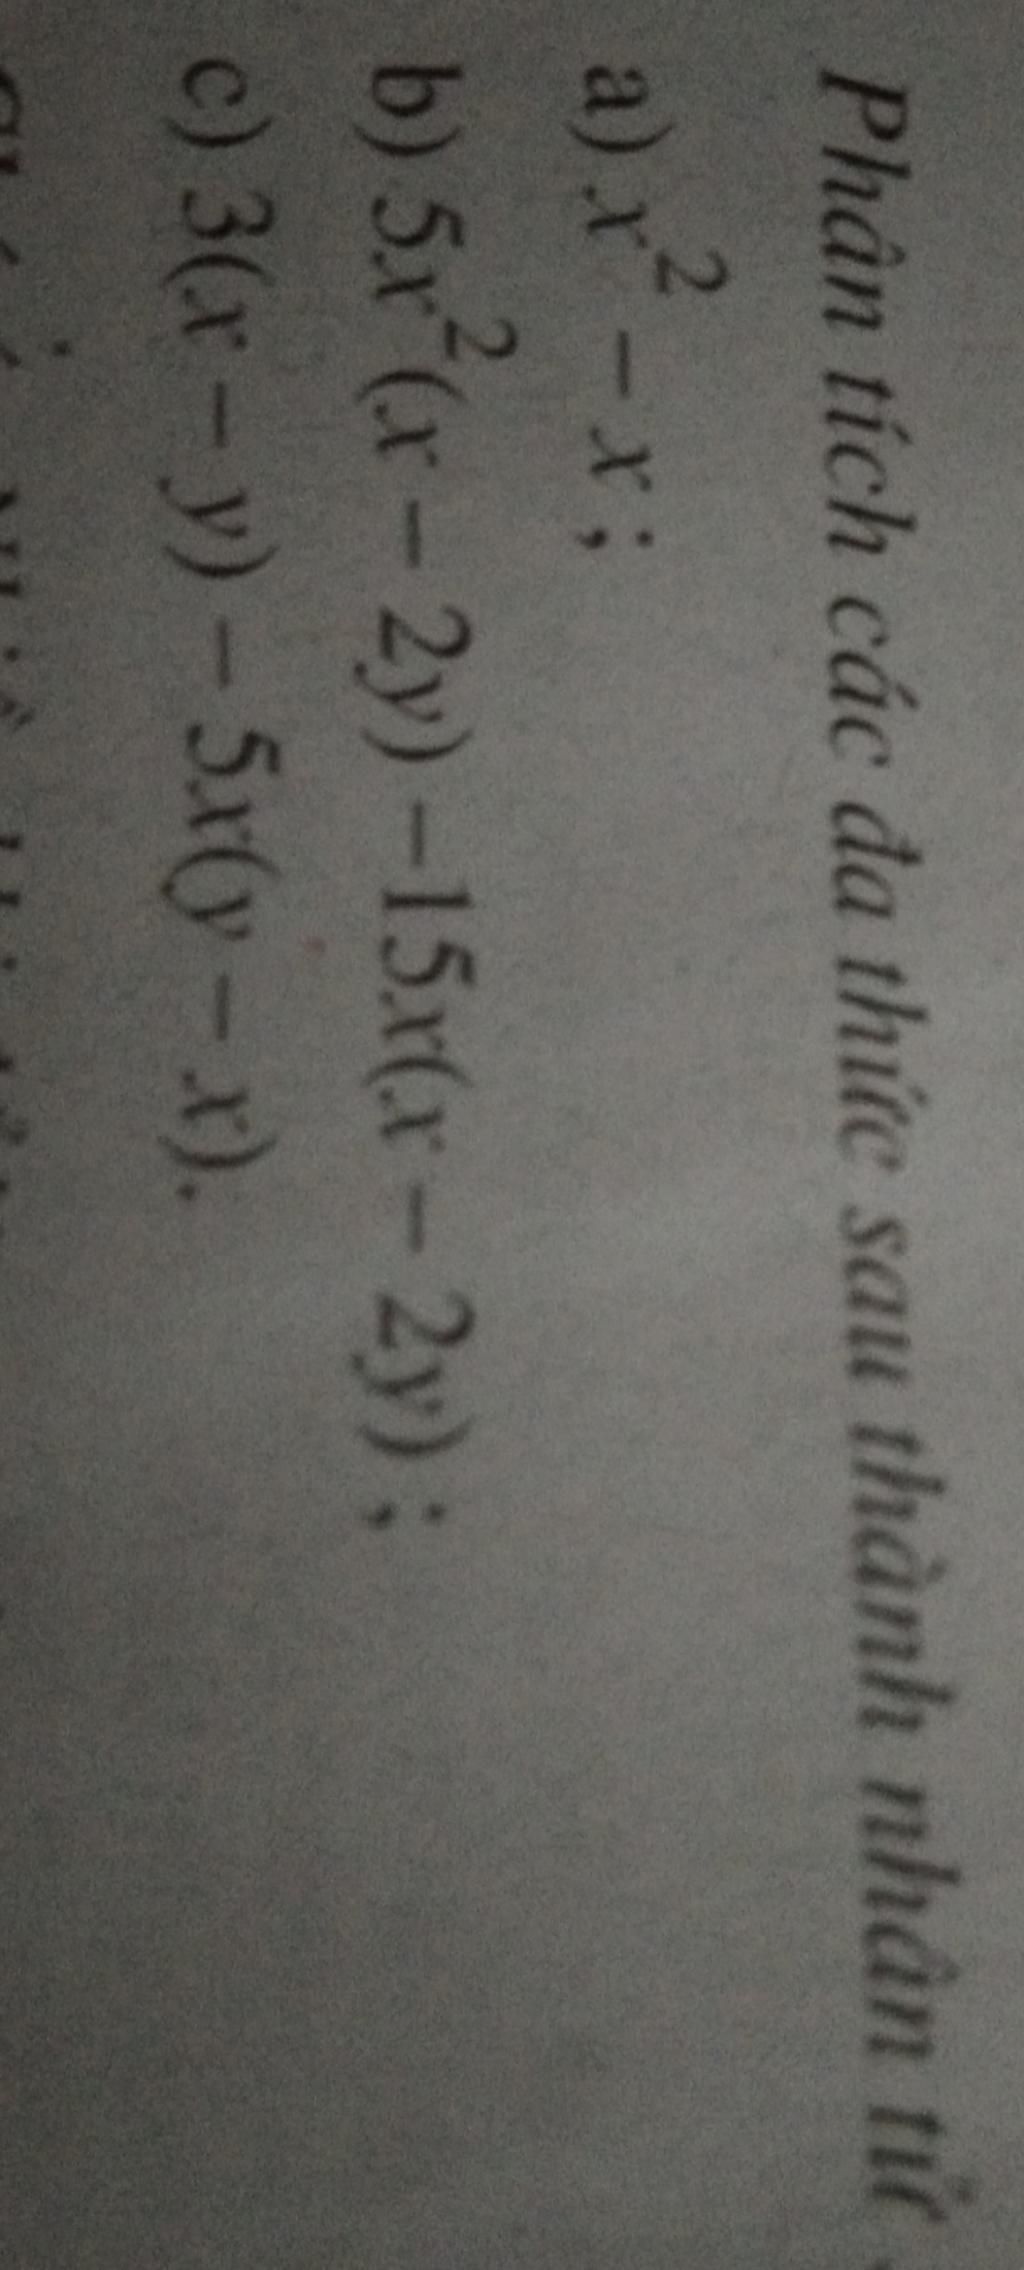 Phân tích các đa thức sau thành nhân tử
a) x² – x ;
b) 5x²(x – 2y) – 15x(x – 2y) ;
c) 3(x – y) – 5x(y – x).